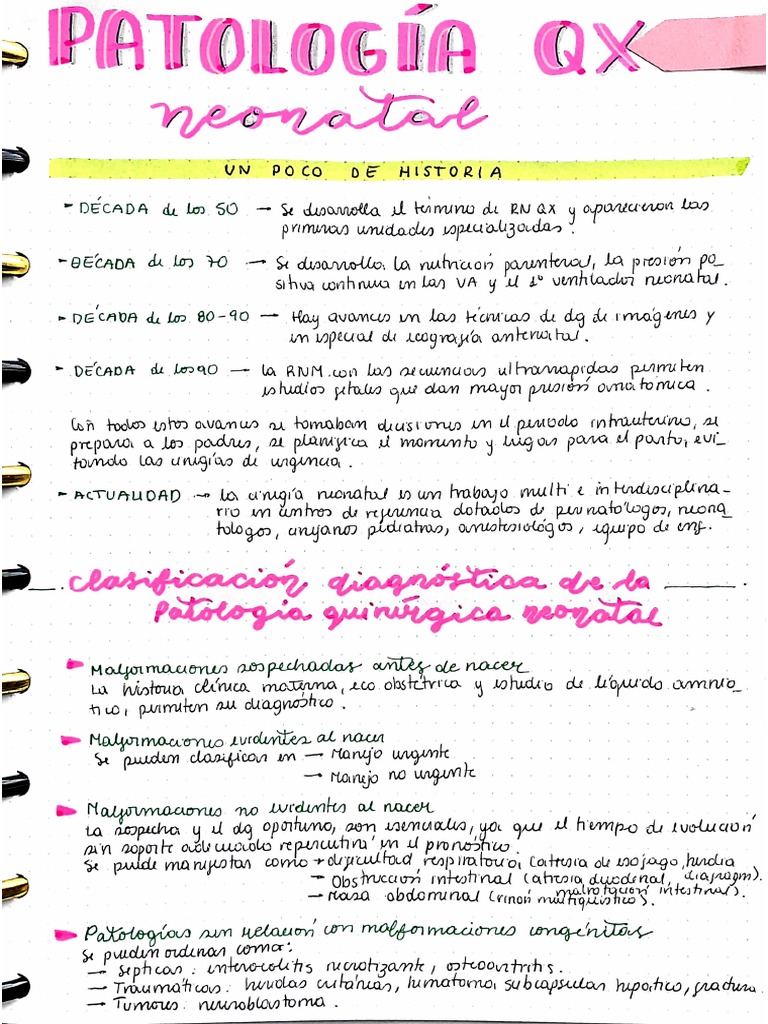 PATOLOGÍA QX
neonatal
UN POCO DE HISTORIA
- DÉCADA de los 50 → Se desarrolla el término de RN QX y aparecieron las
primeras unidades especializadas.
- DÉCADA de los 70 → Se desarrolla la nutrición parenteral, la presión po-
sitiva continua en las VA y el 1º ventilador neonatal.
- DÉCADA de los 80-90 → Hay avances en las técnicas de dg de imágenes y
en especial de ecografía antenatal.
- DÉCADA de los 90 → la RNM con las secuencias ultrarapidas permiten
estudios fetales que dan mayor presión anatomica.
Con todos estos avances se tomaban decisiones en el periodo intrauterino, se
prepara a los padres, se planifica el momento y lugar para el parto, evi-
tando las cirugías de urgencia.
- ACTUALIDAD → la cirugía neonatal es un trabajo multi e interdisciplina-
rio en centros de referencia dotados de perinatólogos, neona-
tologos, cirujanos pediatras, anestesiológos, equipo de enf.
Clasificación diagnóstica de la
Patología quirúrgica neonatal
Malformaciones sospechadas antes de nacer
La historia clínica materna, eco obstétrica y estudio de líquido amnio-
tico, permiten su diagnóstico.
Malformaciones evidentes al nacer
Se pueden clasificar en → Manejo urgente
→ Manejo no urgente
Malformaciones no evidentes al nacer
La sospecha y el dg oportuno, son esenciales, ya que el tiempo de evolución
sin soporte adecuado repercutirá en el pronóstico.
Se puede manifestar como → dificultad respiratoria (atresia de esofago, hernia
diafragm).
→ Obstrucción intestinal (atresia duodenal, malrotación intestinal).
→ Masa abdominal (riñon multiquístico).
Patologías sin relación con malformaciones congénitas
Se pueden ordenar como:
→ Septicas: enterocolitis necrotizante, osteoartritis.
→ Traumáticas: heridas cutáneas, hematoma subcapsular hepático, fractura.
→ Tumores: neuroblastoma.